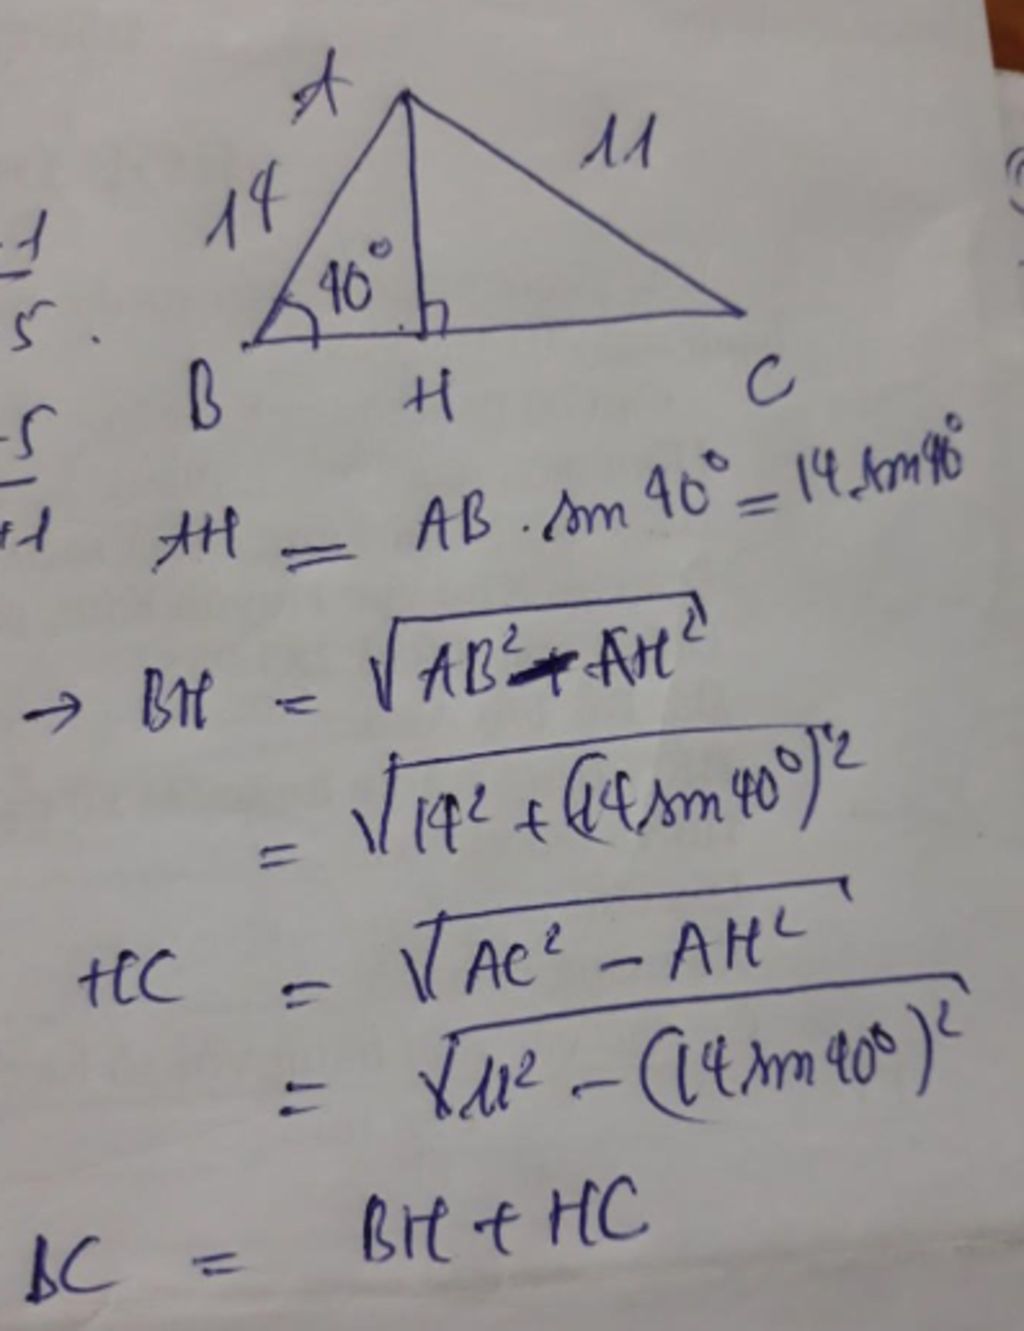 A
11
14
40°
-1
5.
B
H
C
-5
+1
AH = AB . sin 40° = 14.sin40°
→ BH = √AB² - AH²
= √14² + (14sin40°)²
HC = √AC² - AH²
= √11² - (14sin40°)²
BC = BH + HC